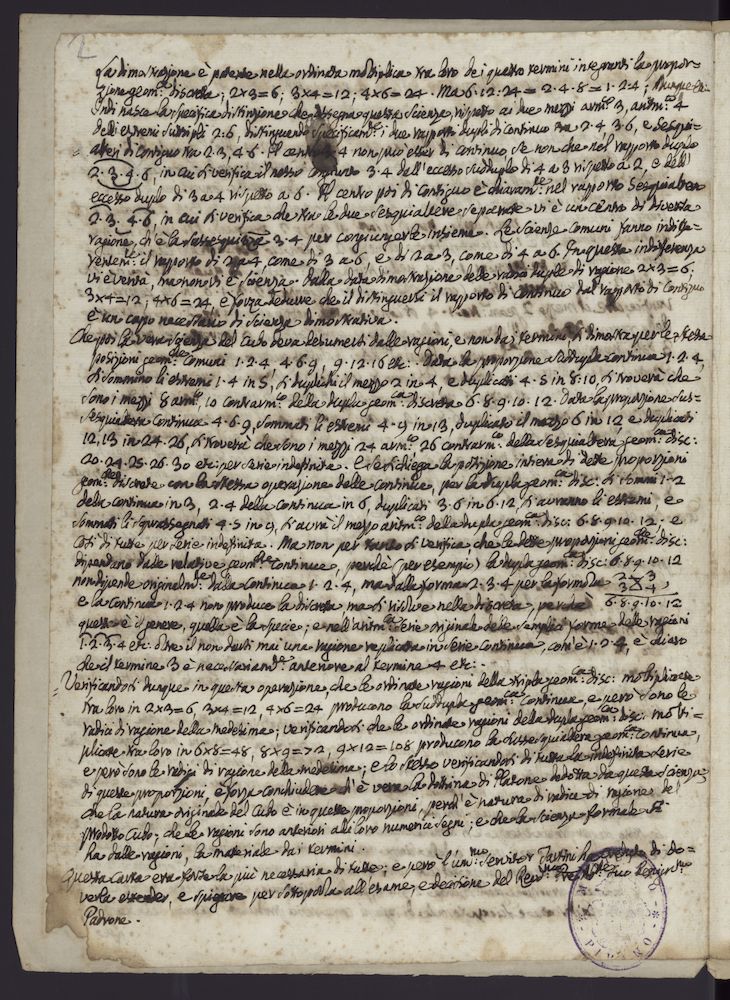 2
La dimostrazione è patente nella ordinata moltiplica tra loro dei quattro termini integranti la propor=
zione geom.ca discreta; 2×3=6; 3×4=12; 4×6=24. Ma 6·12·24 = 2·4·8 = 1·2·4; dunque etc.
Indi nasce la specifica distinzione che assegna questa Scienza rispetto ai due mezzi arm.co 3, aritm.co 4
delli estremi suttripli 2·6, distinguendo specificam.te i due rapporti dupli di continuo tra 2·4 3·6, e sesqui=
alteri di contiguo tra 2·3, 4·6. Il 4 non può esser di continuo se non che nel rapporto duplo
2·3·4·6, in cui di verifica il nostro 3·4 dell'eccesso sudduplo di 4 a 3 rispetto a 2, e dell'
eccesso duplo di 3 a 4 rispetto a 6. Il centro poi di Contiguo è chiaram.te nel rapporto Sesquialtero
2·3·4·6, in cui di verifica che tra le due Sesquialtere separate vi è un centro di diversa
ragione, ch'è la 3·4 per congiungerle insieme. Le Scienze Comuni fanno indiffe=
rentem.te il rapporto di 2 a 4 come di 3 a 6, e di 2 a 3, come di 4 a 6. In questa indifferenza
vi è verità, ma non vi è scienza. Dalla data dimostrazione delle radici duple di ragione 2×3=6;
3×4=12; 4×6=24, è forza dedurre che il distinguersi il rapporto di Continuo dal rapporto di Contiguo
è un capo necessario di Scienza dimostrativa.
Che poi la vera Scienza del Cubo deva desumersi dalle ragioni, e non dai termini, si dimostra per le stesse
posizioni geom.che Comuni 1·2·4, 4·6·9, 9·12·16 etc. Data la proporzione suddupla continua 1·2·4,
si sommino li estremi 1·4 in 5, si duplichi il mezzo 2 in 4, e duplicati 4·5 in 8·10, si troverà che
sono i mezzi 8 arm.co, 10 contrarm.co della dupla geom.ca discreta 6·8·9·10·12. Data la proporzione sus=
sesquialtera Continua 4·6·9, sommati li estremi 4·9 in 13, duplicato il mezzo 6 in 12 e duplicati
12, 13 in 24·26, si troverà che sono i mezzi 24 arm.co 26 contrarm.co della Sesquialtera geom.ca disc:
20·24·25·26·30 etc: per serie indefinita. E se si chiega la posizione intiera di dette proporzioni
geom.che discrete con la stessa operazione delle continue, per la dupla geom.ca disc: si sommi 1·2
della continua in 3, 2·4 della continua in 6, duplicati 3·6 in 6·12, si avranno li estremi, e
sommati li sopra segnati 4·5 in 9, si avrà il mezzo aritm.co della dupla geom.ca disc: 6·8·9·10·12· e
così di tutte per serie indefinita. Ma non per tanto si verifica, che le dette proporzioni geom.che disc:
dipendano dalle relative geom.che Continue, perchè (per esempio) la dupla geom.ca disc: 6·8·9·10·12
non dipende originalm.te dalla Continua 1·2·4, ma dalla forma 2·3·4 per la formola 2×3
3 4
e la continua 1·2·4 non produce la discreta ma si risolve nella discreta, perchè 6·8·9·10·12
questa è il genere, quella è la specie; e nell'aritm.ca serie originale delle semplici forme delle ragioni
1·2·3·4 etc: oltre il non darsi mai una ragione replicata in serie Continua, com'è 1·2·4, è chiaro
che il termine 3 è necessariam.te anteriore al termine 4 etc:.
Verificandosi dunque in questa operazione che le ordinate ragioni della tripla geom.ca disc: moltiplicate
tra loro in 2×3=6, 3×4=12, 4×6=24 producono la suddupla geom.ca Continua, e però sono le
radici di ragione della medesima; verificandosi che le ordinate ragioni della dupla geom.ca disc: molti=
plicate tra loro in 6×8=48, 8×9=72, 9×12=108 producono la Sussesquialtera geom.ca Continua,
e però sono le radici di ragione della medesima; e lo stesso verificandosi di tutta la indefinita serie
di queste proporzioni, è forza conchiudere ch'è vera la dottrina di Platone dedotta da questa Scienza,
che la natura originale del Cubo è in queste proporzioni, perch'è natura di radice di ragione del
prodotto Cubo; che le ragioni sono anteriori alli loro numerici segni; e che la scienza formale si
ha dalle ragioni, la materiale dai termini.
Questa Carta era forse la più necessaria di tutte; e però l'um.mo Servitor Tartini ha creduto di do=
verla estender, e spiegare per sottoporla all'esame, e decisione del Rev.mo suo
Padrone.
PIRANO